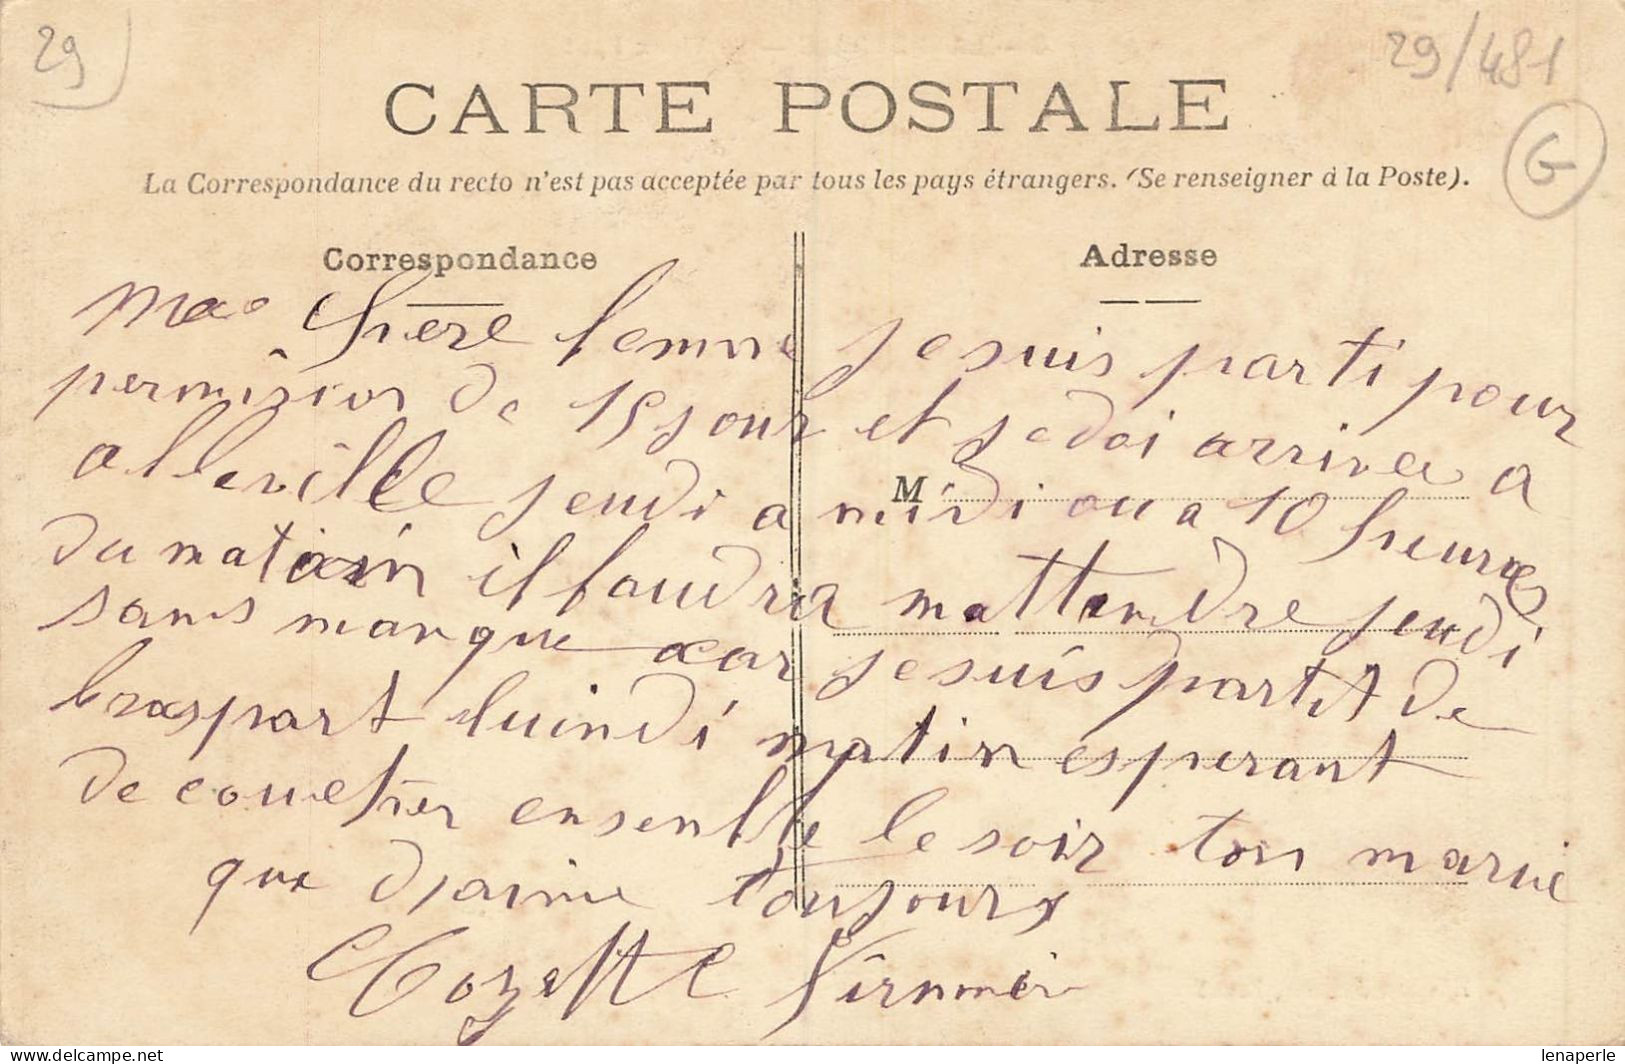 29
29/481
G
CARTE POSTALE
La Correspondance du recto n'est pas acceptée par tous les pays étrangers. (Se renseigner à la Poste).
Correspondance
Adresse
M
Ma Chère femme je suis parti pour
permision de 15 jour et je doi arriver a
alleville jeudi a midi ou a 10 heures
du matin il faudra mattendre jeudi
sans manque car je suis partit de
braspart luindi matin esperant
de coucher ensemble le soir ton marie
que t'aime toujours